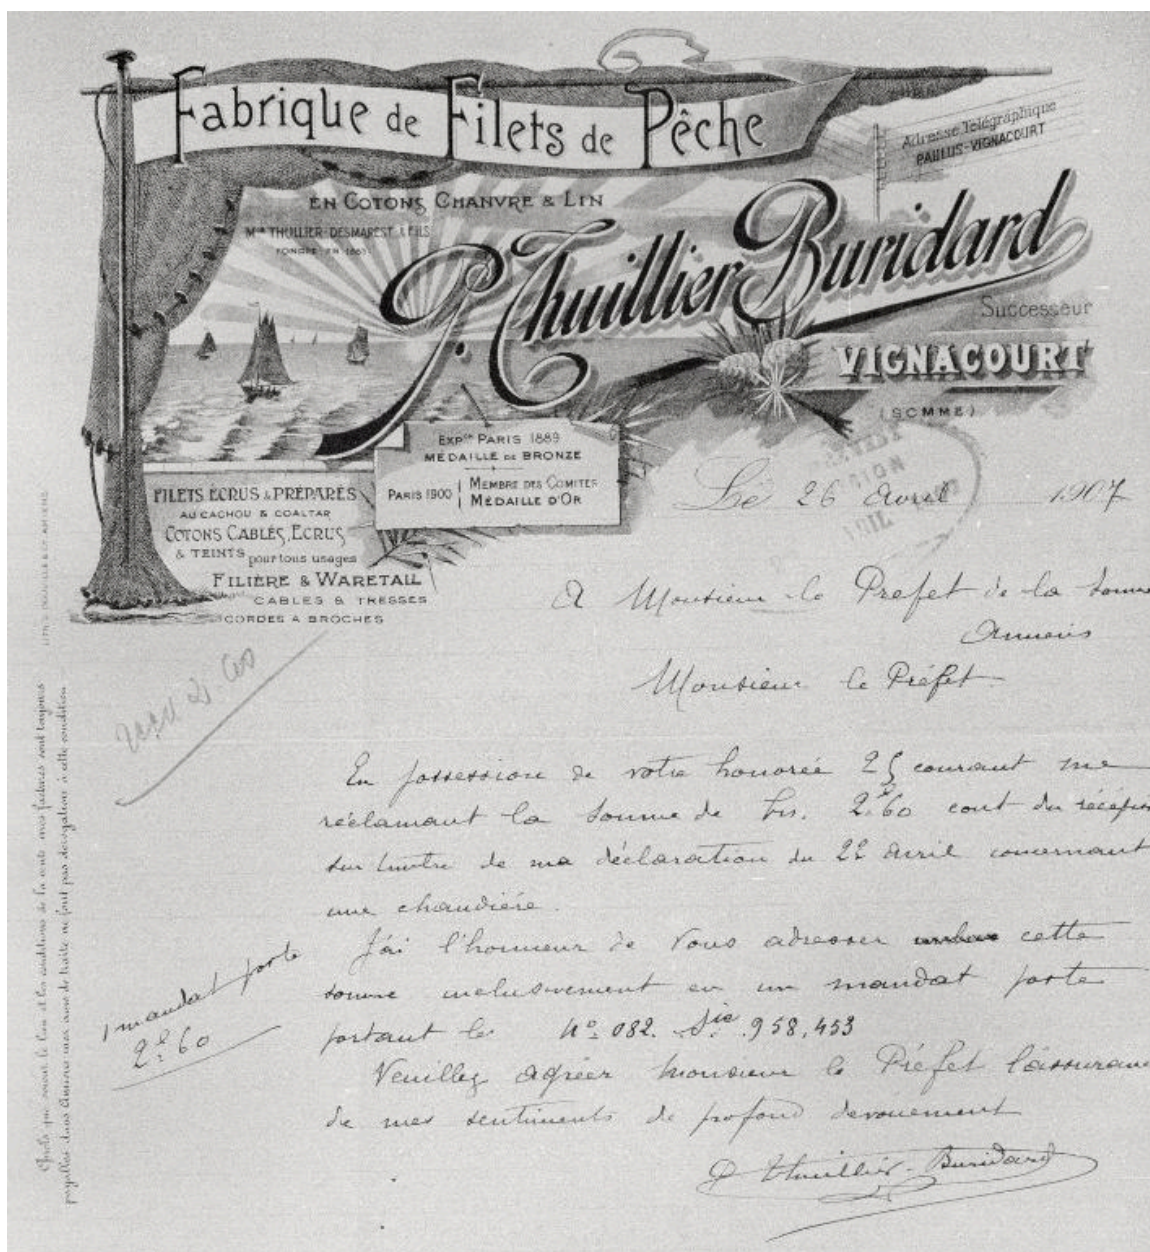 Fabrique de Filets de Pêche
Adresse Télégraphique
PAULUS-VIGNACOURT
EN COTONS, CHANVRE & LIN
Mon THUILLIER-DESMAREST & FILS
FONDÉE EN
P. Thuillier Buridard
Successeur
VIGNACOURT
(SOMME)
EXPon PARIS 1889
MÉDAILLE DE BRONZE
PARIS 1900
MEMBRE DES COMITÉS
MÉDAILLE D'OR
FILETS ÉCRUS & PRÉPARÉS
AU CACHOU & COALTAR
COTONS CABLÉS, ECRUS
& TEINTS pour tous usages
FILIÈRE & WARETAIL
CABLES & TRESSES
CORDES A BROCHES
Le 26 Avril 1907
A Monsieur le Prefet de la Somme
Amiens
Monsieur le Préfet
En possession de votre honorée 25 courant me
réclamant la somme de frs. 2f60 cout du
sur timbre de ma déclaration du 22 avril concernant
une chaudière.
J'ai l'honneur de vous adresser cette
somme inclusivement en un mandat poste
portant le No 082. Sie 958,453
Veuillez agréer monsieur le Préfet l'assurance
de mes sentiments de profond devouement
P Thuillier-Buridard
1 mandat poste
2f60